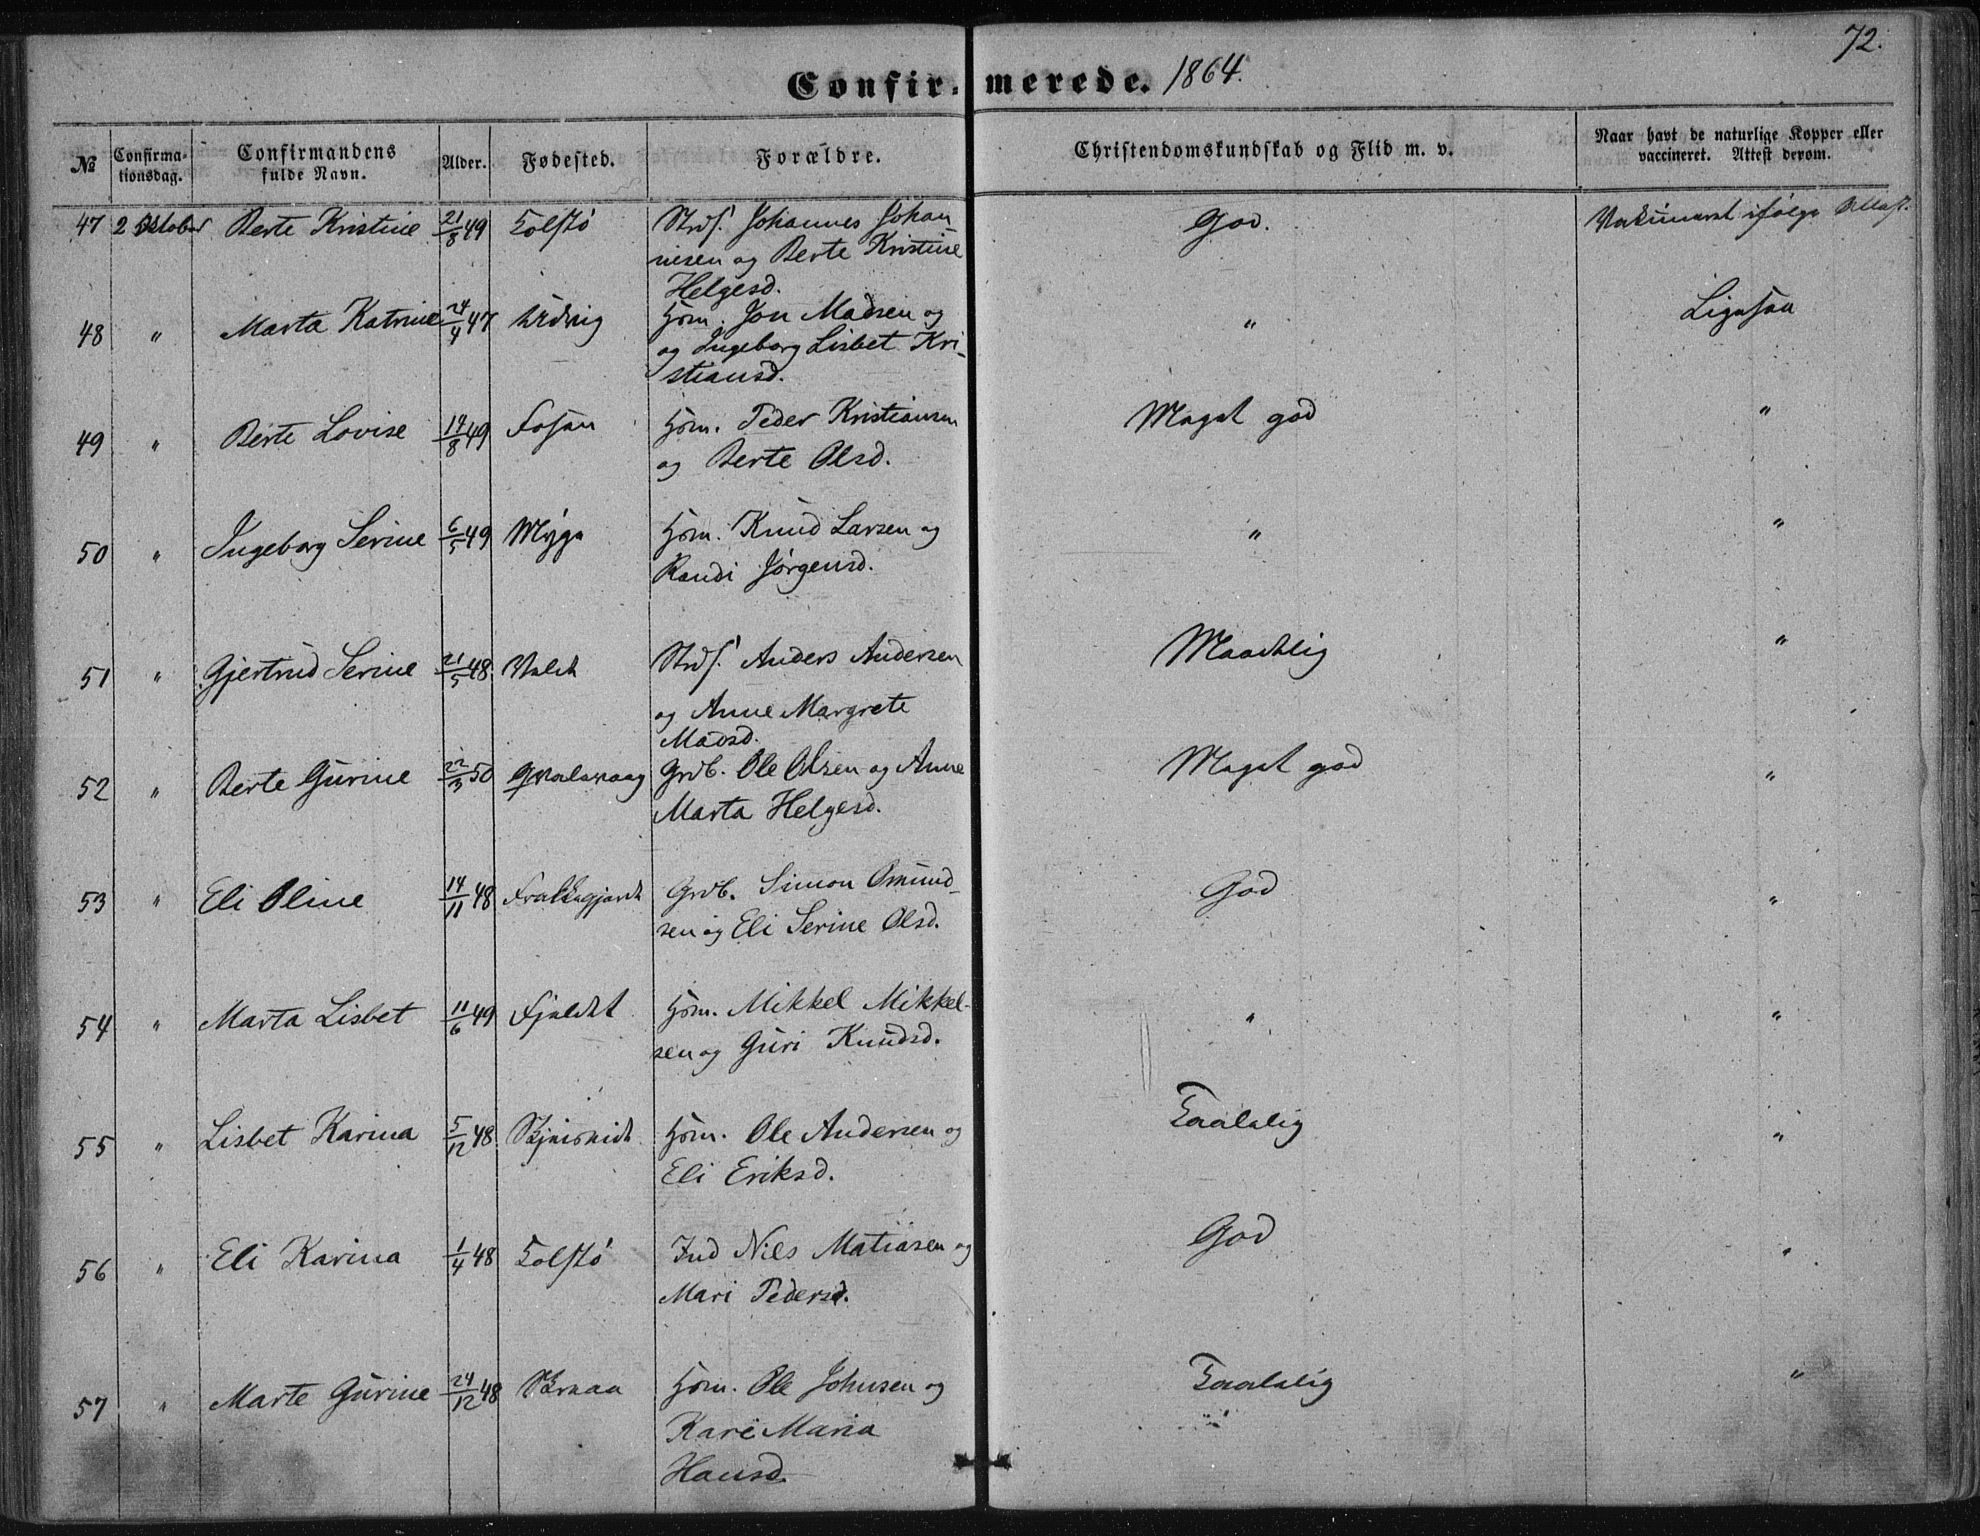 72.
Confir- merede. 1864.
№ Confirma- tionsdag. Confirmandens fulde Navn. Alder. Fødested. Forældre. Christendomskundskab og Flid m. v. Naar havt de naturlige Kopper eller vaccineret. Attest derom.
47 2 Oktober Berte Kristine 21/8 49 Tolstø Strds. Johannes Johan- God. Vakcineret ifølge Attest.
nesen og Berte Kristine
Helgesd.
48 " Marta Katrine 24/4 47 Udvig Hsm. Jon Madsen og " Ligesaa
og Ingeborg Lisbet Kri-
stiansd.
49 " Berte Lovise 14/8 49 Fosen Hsm. Peder Kristiansen Meget god "
og Berte Olsd.
50 " Ingeborg Serine 6/5 49 Myge Hsm. Knud Larsen og " "
Randi Jørgensd.
51 " Gjertrud Serine 21/5 48. Valde Strds. Anders Andersen Maadelig "
og Anne Margrete
Madsd.
52 " Berte Gurine 22/3 50 Qvalevaag Grdb. Ole Olsen og Anne Meget god "
Marta Helgesd.
53 " Eli Oline 14/11 48 Frakkagjerde Grdb. Simon Omund- God "
sen og Eli Serine Olsd.
54 " Marta Lisbet 11/6 49 Fjeldet Hsm. Mikkel Mikkel- " "
sen og Guri Knudsd.
55 " Lisbet Karina 5/12 48. Hsm. Ole Andersen og Taalelig "
Eli Eriksd.
56 " Eli Karina 1/4 48 Tolstø Ind Nils Matiasen og God "
Mari Pedersd.
57 " Marte Gurine 24/12 48 Skraa Hsm. Ole Johnsen og Taalelig "
Kari Maria
Hansd.